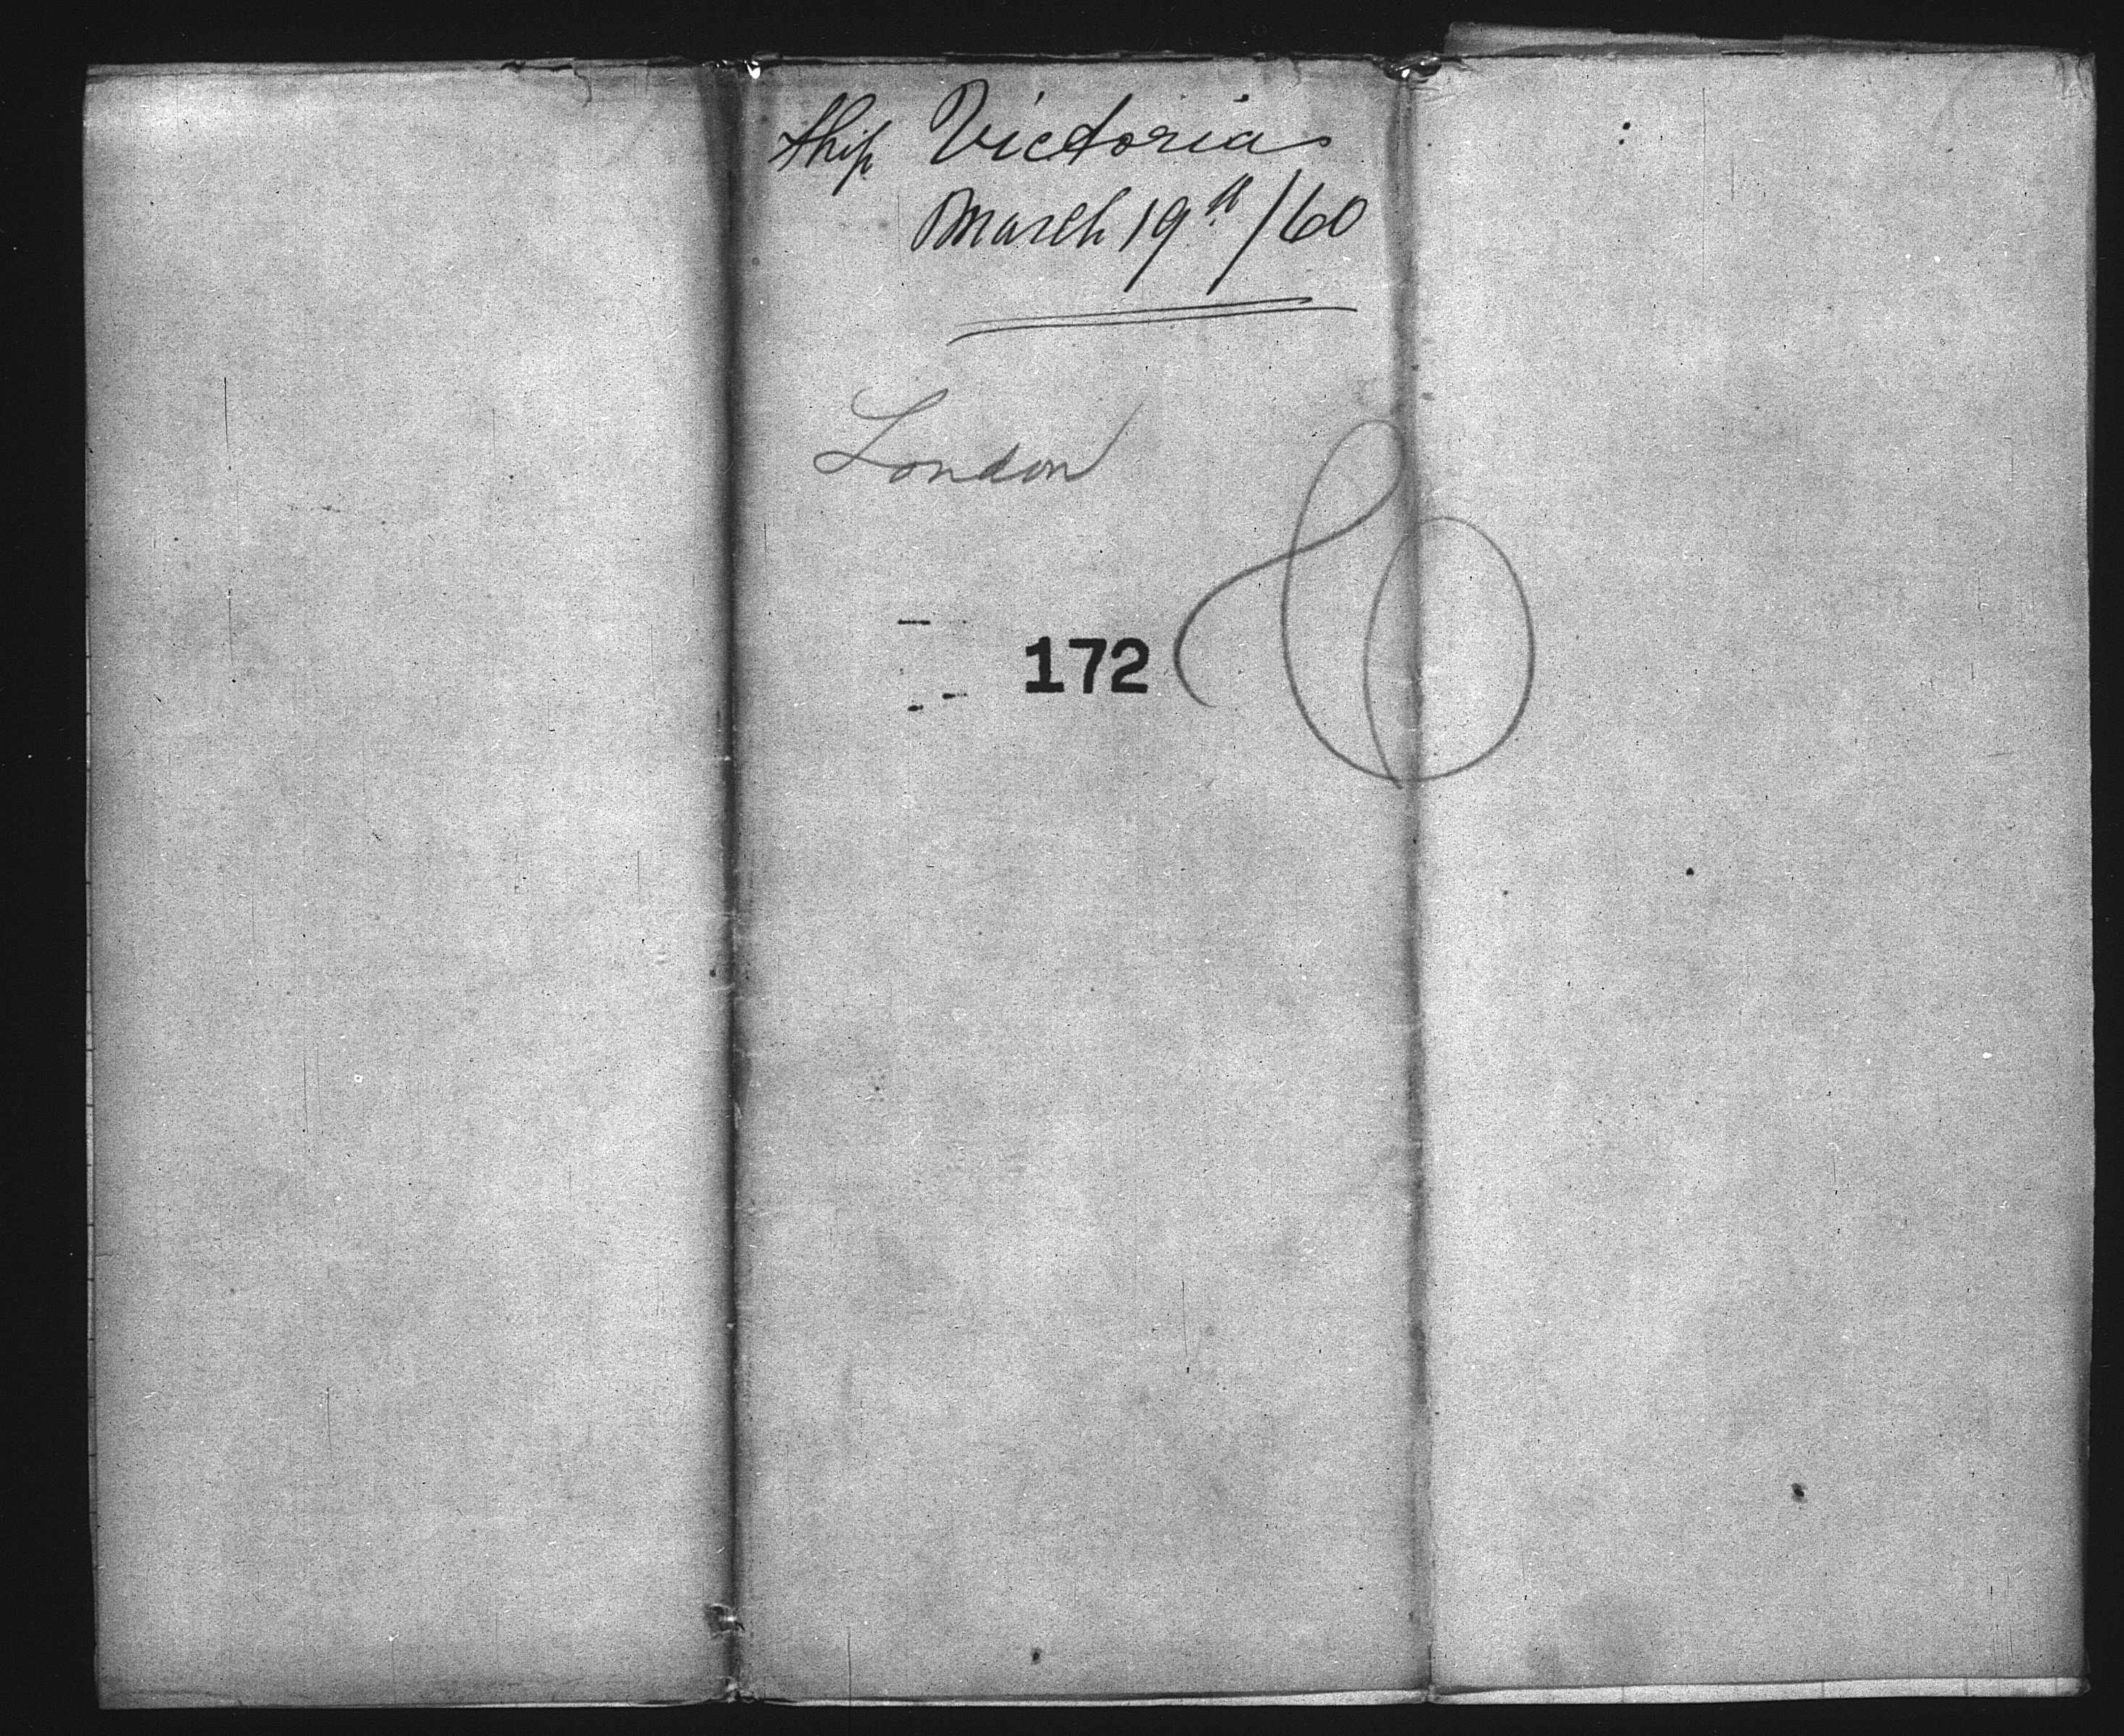 Ship Victoria
March 19th /60
London
172